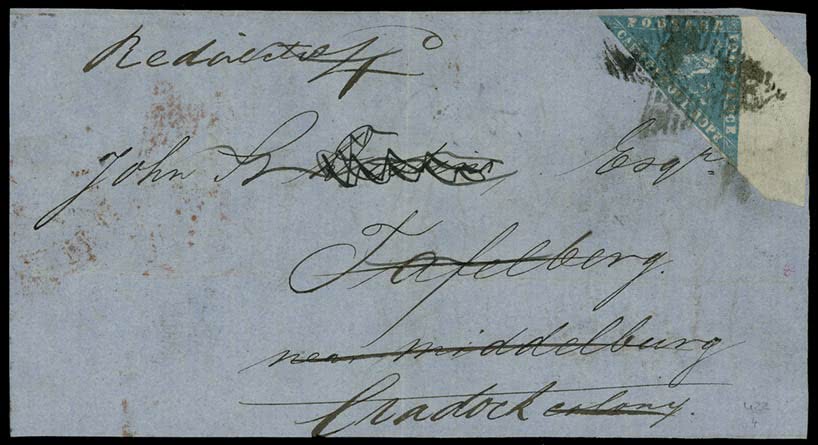 Redirected
POSTAGE
FOUR PENCE
CAPE OF GOOD HOPE
John Esqr.
Tafelberg.
near Middelburg
Cradock colony.
422
4